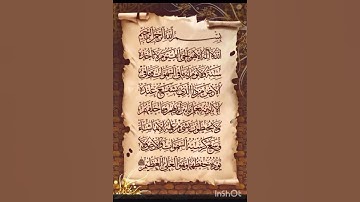 بِسْمِ اللَّهِ الرَّحْمَٰنِ الرَّحِيمِ
اللَّهُ لَا إِلَٰهَ إِلَّا هُوَ الْحَيُّ الْقَيُّومُ لَا تَأْخُذُهُ
سِنَةٌ وَلَا نَوْمٌ لَهُ مَا فِي السَّمَوَاتِ وَمَا فِي
الْأَرْضِ مَنْ ذَا الَّذِي يَشْفَعُ عِنْدَهُ
إِلَّا بِإِذْنِهِ يَعْلَمُ مَا بَيْنَ أَيْدِيهِمْ وَمَا خَلْفَهُمْ
وَلَا يُحِيطُونَ بِشَيْءٍ مِنْ عِلْمِهِ إِلَّا بِمَا شَاءَ
وَسِعَ كُرْسِيُّهُ السَّمَوَاتِ وَالْأَرْضَ وَلَا
يَئُودُهُ حِفْظُهُمَا وَهُوَ الْعَلِيُّ الْعَظِيمُ
InShOt